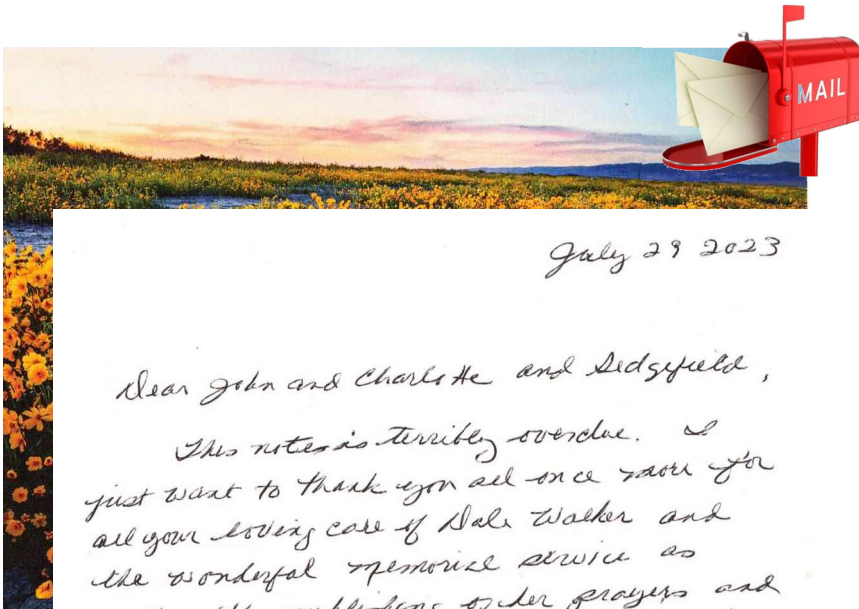 MAIL
July 29 2023
Dear John and Charlotte and Sedgefield,
This note is terribly overdue. I
just want to thank you all once more for
all your loving care of Dale Walker and
the wonderful memorial service as
publishing of her prayers and